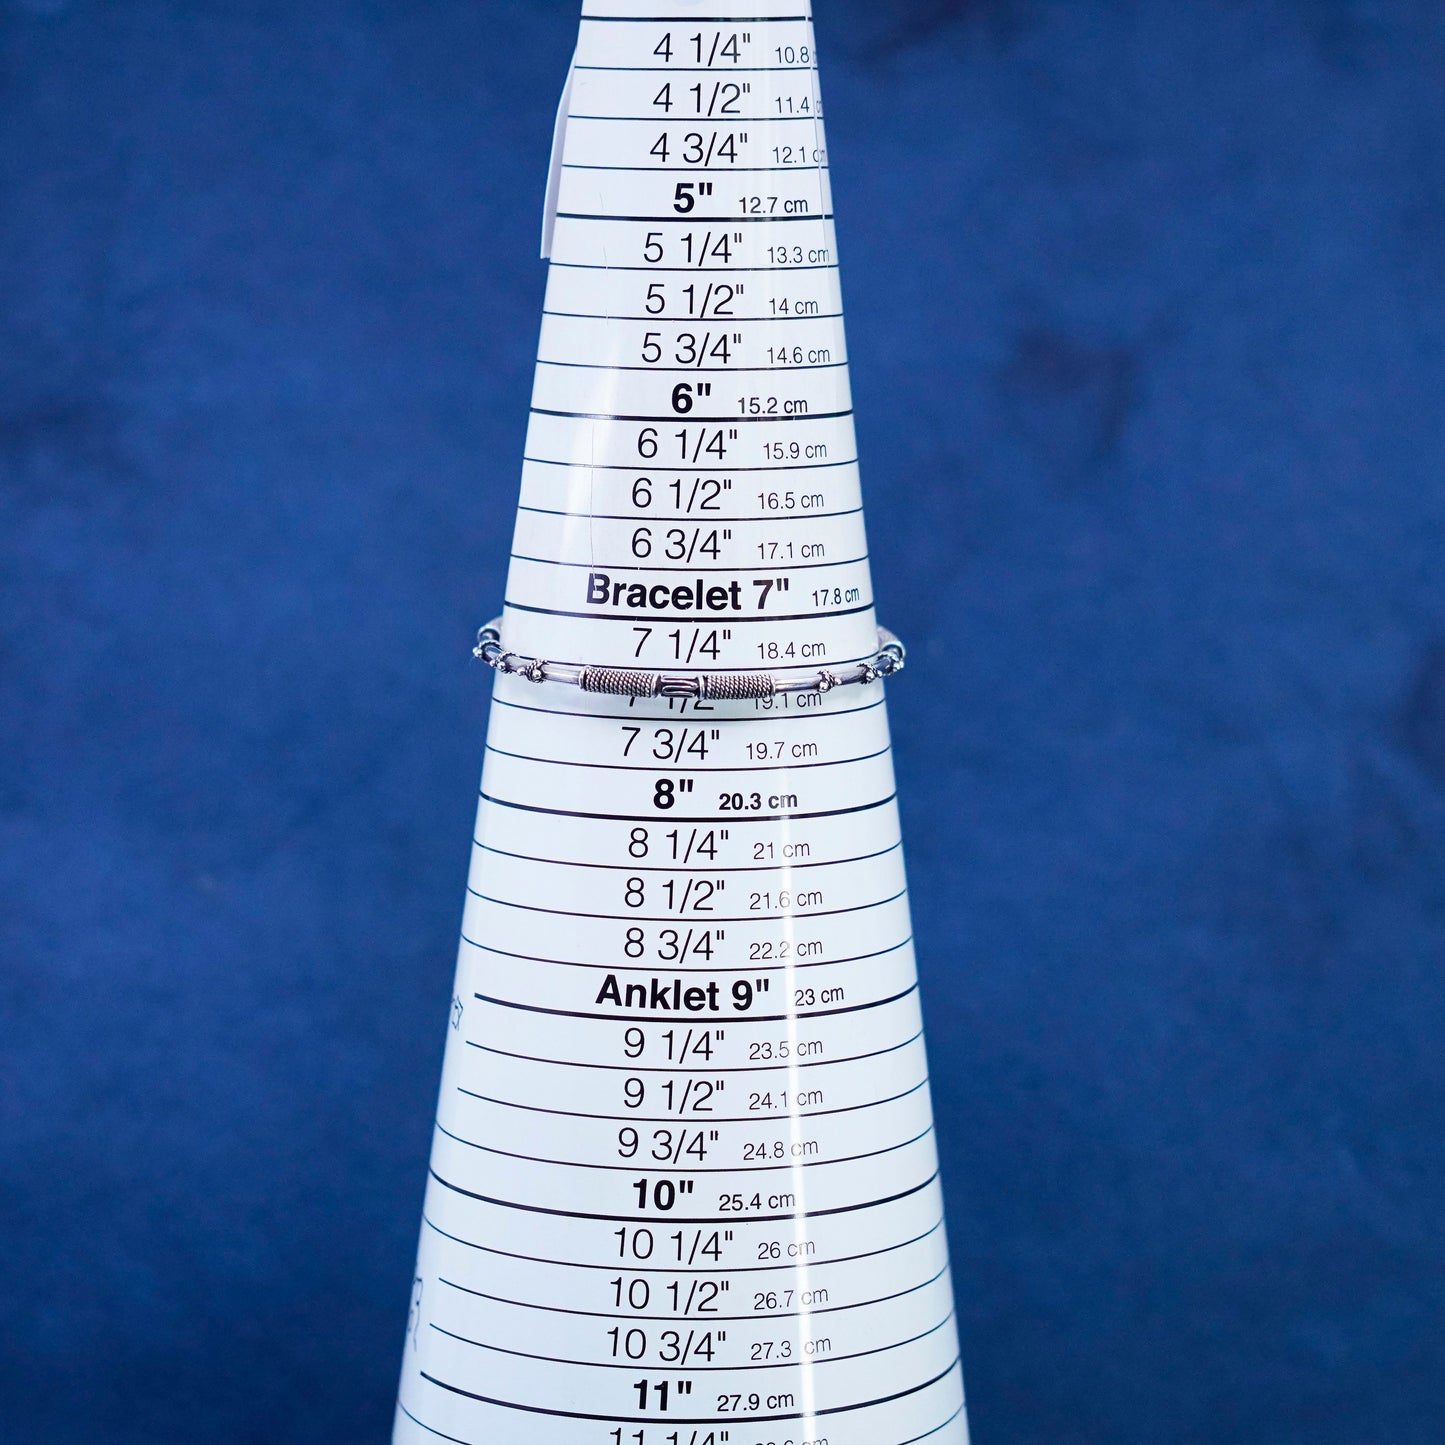 4 1/4" 10.8
4 1/2" 11.4 cm
4 3/4" 12.1 cm
5" 12.7 cm
5 1/4" 13.3 cm
5 1/2" 14 cm
5 3/4" 14.6 cm
6" 15.2 cm
6 1/4" 15.9 cm
6 1/2" 16.5 cm
6 3/4" 17.1 cm
Bracelet 7" 17.8 cm
7 1/4" 18.4 cm
7 1/2 19.1 cm
7 3/4" 19.7 cm
8" 20.3 cm
8 1/4" 21 cm
8 1/2" 21.6 cm
8 3/4" 22.2 cm
Anklet 9" 23 cm
9 1/4" 23.5 cm
9 1/2" 24.1 cm
9 3/4" 24.8 cm
10" 25.4 cm
10 1/4" 26 cm
10 1/2" 26.7 cm
10 3/4" 27.3 cm
11" 27.9 cm
11 1/4"